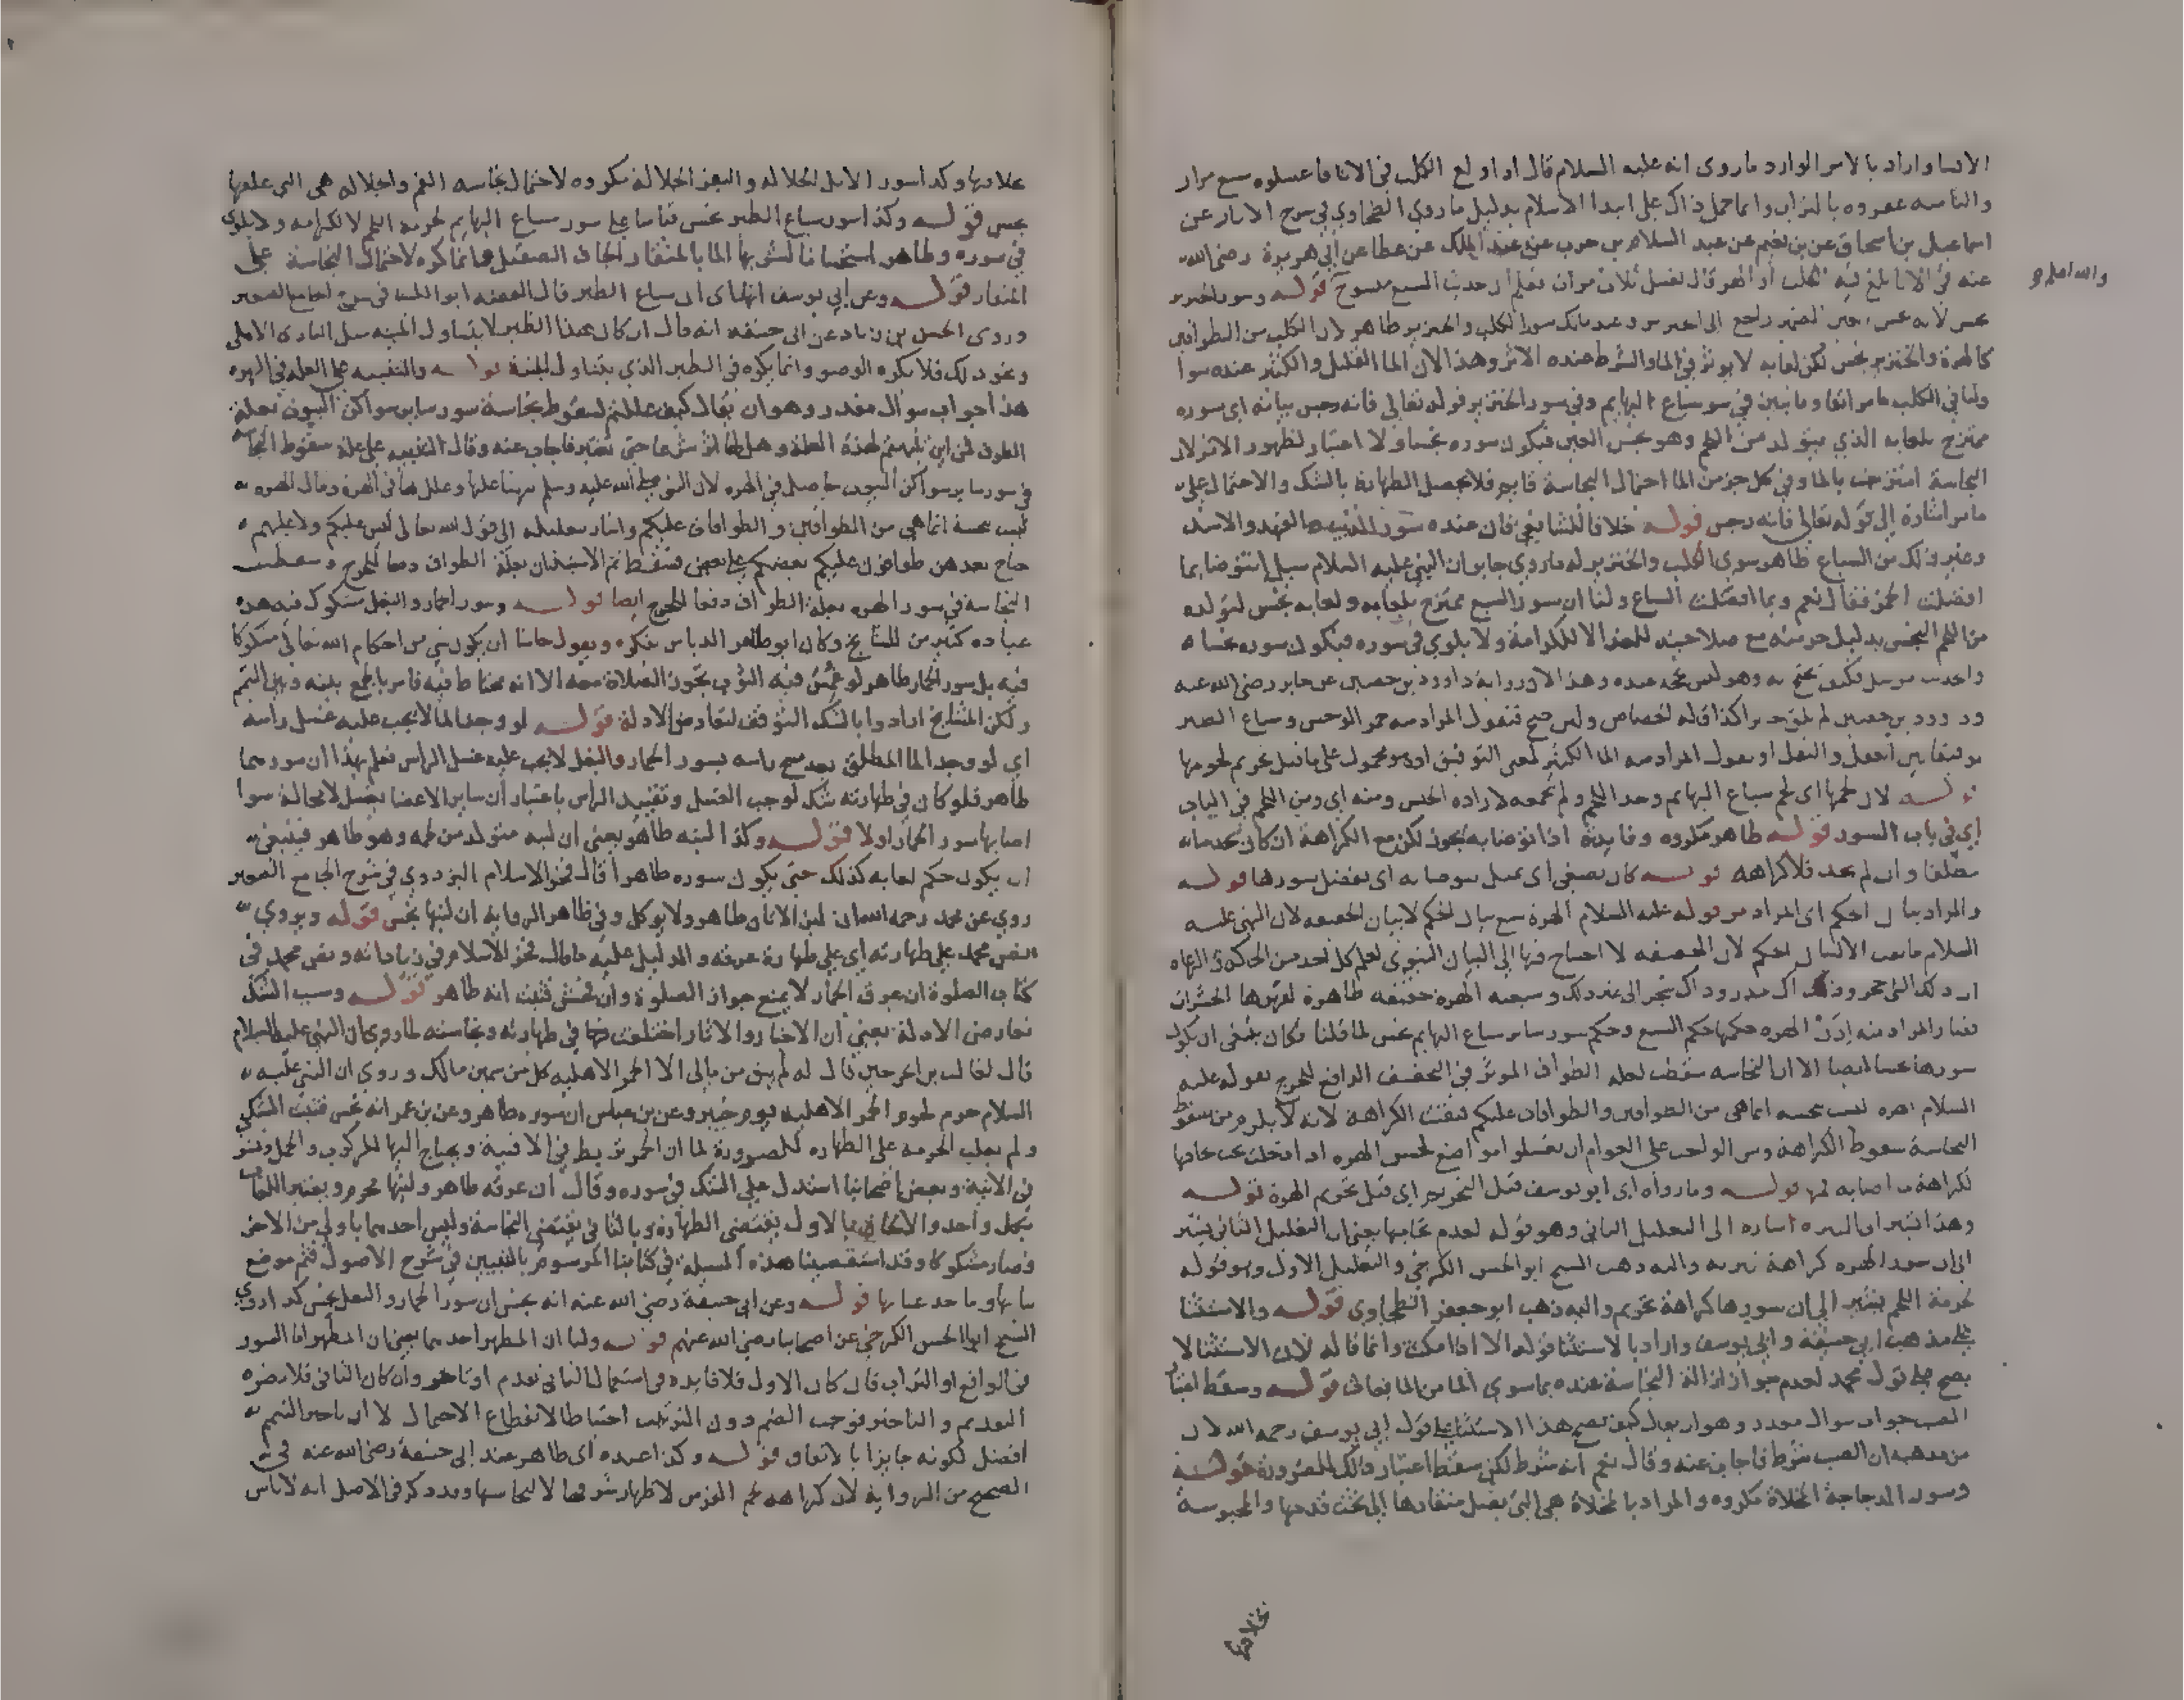 الابتدا واراد بالامر الوارد ماروى انه عليه السلام قال ادا ولغ الكلب فى الانا فاغسلوه سبع مرار
والثامنه عفروه بالتراب وانما حمل ذاك على ابتدا الاسلام بدليل ماروى الطحاوي في شرح الاثار عن
اسماعيل بن اسحاق عن بن نعيم عن عبد السلام بن حرب عن عبد الملك عن عطا عن ابي هريرة رضى الله
عنه فى الانا يلغ فيه الكلب او الهر قال يغسل ثلاث مرات فعلم ان حديث السبع منسوخ قوله وسور الخنزير
والله اعلم
نجس لانه نجس العين الضمير راجع الى الخنزير وعند مالك سور الكلب والخنزير طاهر لان الكلب من الطوافين
كالهرة والخنزير نجس لكن لعابه لا يوثر في الما والشرط عنده الاثر وهذا لان الما القليل والكثير عنده سوا
ولنا في الكلب ما مر انفا وما نبين في سور سباع البهايم وفي سور الخنزير قوله تعالى فانه رجس بيانه اى سوره
ممتزج بلعابه الذي يتولد من اللحم وهو نجس العين فيكون سوره نجسا ولا اعتبار لظهور الاثر لان
النجاسة امتزجت بالما وفي كل جز من الما احتمال النجاسة قايم فلا تحصل الطهارة بالشك والاحتمال على
ما مر اشارة الى قوله تعالى فانه رجس قوله خلافا للشافعي فان عنده سور الذيب والفهد والاسد
وغير ذلك من السباع طاهر سوى الكلب والخنزير له ما روي جابر ان النبي عليه السلام سيل انتوضا بما
افضلت الحمر فقال نعم وبما افضلت السباع ولنا ان سور السبع ممتزج بلعابه ولعابه نجس لتولده
من اللحم النجس بدليل حرمته مع صلاحيته للغذا لا للكرامة ولا بلوي في سوره فيكون سوره نجسا
واحديث مرسل فكيف يحتج به وهو ليس بحجه عنده وهذا لان رواية داوود بن حصين عن جابر رضى الله عنه
ود وود بن حصين لم يلق جابرا كذا قاله الخصاص ولين صح فنقول المراد منه حمر الوحش وسباع الطير
توفيقا بين العقل والنقل او نقول المراد منه الما الكثير لمعنى التوفيق او هو محمول على ما قبل تحريم لحومها
قوله لان لحمها اى لحم سباع البهايم وحد اللحم ولم يجمعه لاراده الجنس ومنه اي ومن اللحم في الباب
اي في باب السور قوله طاهر مكروه وفايدته اذا توضا به يجوز لكن مع الكراهة ان كان يجد ما
مطلقا وان لم يجد فلا كراهه قوله كان يصغى اى يميل يتوضا به اى بفضل سورها قوله
والمراد بيان الحكم اى المراد من قوله عليه السلام الهرة سبع بيان الحكم لا بيان الحقيقه لان النبى عليه
السلام ما بعث الا لبيان الحكم لان الحقيقه لا احتياج فيها الى البيان النبوى لعلم كل احد من الحاكه والرعاه
ان ذلك الشى حجر وذاك مدر وذاك شجر الى غير ذلك وسبعيه الهرة حقيقه ظاهرة لقهرها الحشرات
فصار المراد منه اذن الهره حكمها حكم السبع وحكم سور ساير سباع البهايم نجس لما قلنا فكان ينبغى ان يكون
سورها نجسا ايضا الا ان النجاسه سقطت لعله الطواف الموثر في التخفيف الدافع للحرج بقوله عليه
السلام الهره ليست بنجسه انما هى من الطوافين والطوافات عليكم فبقيت الكراهة لانه لا يلزم من سقوط
النجاسة سقوط الكراهة ومن الواجب على العوام ان يغسلوا مواضع لحس الهره اذا دخلت تحت لحافها
لكراهة ما اصابه فمها قوله وما رواه اى ابو يوسف قبل التحريم اى قبل تحريم الهرة قوله
وهذا يشير الى التنزه اشاره الى التعليل الثانى وهو قوله لعدم تحاميها يعنى ان التعليل الثاني يشير
الى ان سور الهره كراهة تنزيه واليه ذهب الشيخ ابو الحسن الكرخي والتعليل الاول وهو قوله
لحرمة اللحم يشير الى ان سورها كراهة تحريم واليه ذهب ابو جعفر الطحاوي قوله والاستثنا
على مذهب ابي حنيفة وابي يوسف واراد بالاستثنا قوله الا اذا مكثت وانما قاله لان الاستثنا لا
يصح على قول محمد لعدم جواز ازالة النجاسة عنده بما سوى الما من المايعات قوله وسقط اعتبار
الصب جواب سوال مقدر وهو ان يقال كيف يصح هذا الاستثنا على قول ابي يوسف رحمه الله لان
من مذهبه ان الصب شرط فاجاب عنه وقال نعم انه شرط لكن سقط اعتبار ذلك للضرورة قوله
وسور الدجاجة المخلاة مكروه والمراد بالمخلاة هى التي يصل منقارها الى تحت قدمها والمحبوسة
بخلافها
بخلافها وكذا سور الابل الجلاله والبقر الجلالة مكروه لاحتمال نجاسه الفم والجلاله هى التى علفها
نجس قوله وكذا سور سباع الطير نجس قياسا على سور سباع البهايم لحرمه اللحم لا لكرامه ولا بلوى
في سوره وطاهر استحسانا لشربها الما بالمنقار الجاف الصقيل وانما كره لاحتمال النجاسة على
المنقار قوله وعن ابي يوسف انها اى ان سباع الطير قال الفقيه ابو الليث فى شرح الجامع الصغير
وروى الحسن بن زياد عن ابى حنيفه انه قال ان كان هذا الطير لا يتناول الميته مثل البازى الاهلى
ونحو ذلك فلا يكره الوضو وانما يكره فى الطير الذي يتناول الميتة قوله والتنبيه على العله في الهره
هذا جواب سوال مقدر وهو ان يقال كيف عللتم لسقوط نجاسة سور ساير سواكن البيوت بعلة
الطوف فمن اين ثبت لهم لهذه العلة وهل لها اثر شرعا حتى تعتبر فاجاب عنه وقال التنبيه على علة سقوط النجاسه
فى سور ساير سواكن البيوت حاصل في الهره لان النبى صلى الله عليه وسلم نبهنا عليها وعلل بها فى الهرة وقال الهره
ليست بنجسة انما هي من الطوافين والطوافات عليكم واشار بتعليله الى قول الله تعالى ليس عليكم ولا عليهم
جناح بعدهن طوافون عليكم بعضكم على بعض فسقط ثم الاستيذان بعلة الطواف دفعا للحرج وسقطت
النجاسه في سور الهره بعلة الطواف دفعا للحرج ايضا قوله وسور الحمار والبغل مشكوك فيه هذه
عباده كثير من المشايخ وكان ابو طاهر الدباس ينكره ويقول حاشا ان يكون شي من احكام الله تعالى مشكوكا
فيه بل سور الحمار طاهر لو غمس فيه الثوب تجوز الصلاة معه الا انه محتاط فيه فامر بالجمع بينه وبين التيمم
ولكن المشايخ ارادوا بالشك التوقف لتعارض الادلة قوله لو وجد الما لا يجب عليه غسل راسه
اى لو وجد الما المطلق بعد مسح راسه بسور الحمار والبغل لا يجب عليه غسل الراس فعلم بهذا ان سورهما
طاهر فلو كان في طهارته شك لوجب الغسل وتقييد الراس باعتبار ان ساير الاعضا يغسل لا محالة سوا
اصابها سور الحمار اولا قوله وكذا لبنه طاهر يعني ان لبنه متولد من لحمه وهو طاهر فينبغي
ان يكون حكم لعابه كذلك حتى يكون سوره طاهرا قال فخر الاسلام البزدوي في شرح الجامع الصغير
روي عن محمد رحمه الله ان لبن الاتان طاهر ولا يوكل وفي ظاهر الرواية ان لبنها نجس قوله ويروي
نص محمد على طهارته اي على طهارة عرقه والدليل عليه ما قال فخر الاسلام في زياداته ونص محمد في
كتاب الصلوة ان عرق الحمار لا يمنع جواز الصلوة وان فحش فثبت انه طاهر قوله وسبب الشك
تعارض الادلة يعني ان الاخبار والاثار اختلفت فيها في طهارته ونجاسته لما روي ان النبى عليه السلام
قال لغالب بن ابجر حين قال له لم يبق من مالى الا الحمر الاهليه كل من سمين مالك وروي ان النبي عليه
السلام حرم لحوم الحمر الاهليه يوم خيبر وعن بن عباس ان سوره طاهر وعن بن عمر انه نجس فثبت الشك
ولم يغلب الحرمه على الطهاره للضرورة لما ان الحمر تربط في الافنية ويحتاج اليها للركوب والحمل وتشرب
فى الانية وبعض اصحابنا استدل على الشك في سوره وقال ان عرقه طاهر ولبنها محرم ويعتبر اللعاب
بكل واحد والالحاق بالاول يقتضى الطهارة وبالثاني يقتضى النجاسة وليس احدهما باولى من الاخر
فصار مشكوكا وقد استقصينا هذه المسيله في كتابنا الموسوم بالتبيين في شرح الاصول فثم موضع
بيانها وماحد عنانها قوله وعن ابي حنيفة رضي الله عنه انه نجس ان سور الحمار والبغل نجس كذا روي
الشيخ ابو الحسن الكرخي عن اصحابنا رضي الله عنهم قوله ولنا ان المطهر احدهما يعني ان المطهر اما السور
فى الواقع او التراب فان كان الاول فلا فايده في استعمال الثاني تقدم او تاخر وان كان الثاني فلا يضره
التقديم والتاخير فوجب الضم دون الترتيب احتياطا لانقطاع الاحتمال لا ان تاخير التيمم
افضل لكونه جايزا بالاتفاق قوله وكذا عنده اى طاهر عند ابى حنيفة رضى الله عنه في
الصحيح من الرواية لان كراهه لحم الفرس لاظهار شرفها لا لنجاستها وقد ذكر فى الاصل انه لا باس